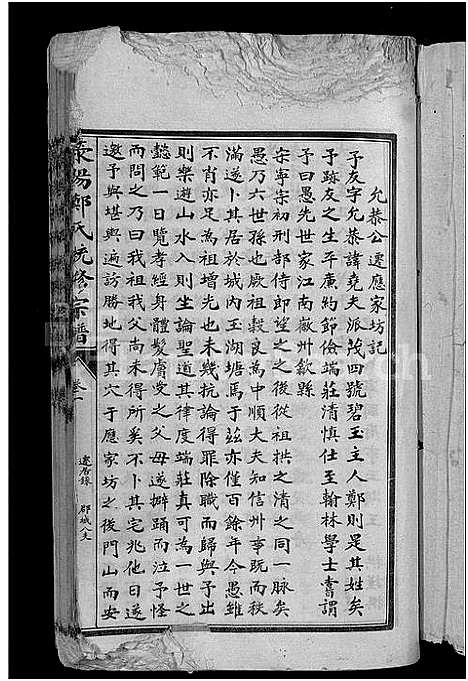 允恭公遷應家坊記
子友字允恭諱堯夫派茂四號碧玉主人鄭則是其姓矣
予跡友之生平廣約節儉端莊清慎仕至翰林學士嘗謂
予曰愚先世家江南徽州歙縣
宋寧宗初刑部侍郎望之之後從祖拱之清之同一脉矣
愚乃六世孫也厥祖穀良爲中順大夫知信州事既而秩
滿遂卜其居於城內玉湖塘焉于茲亦僅百餘年今愚雖
不肖亦足為祖增光也未幾抗論得罪除職而歸與予出
則樂遊山水入則生論聖道其律度端莊真可為一世之
懿範一日覽孝經身體髮膚受之父母遂擗踊而泣予怪
而問之乃曰我祖我父尚未得所奚不卜其宅兆他日遂
邀予與堪輿遍訪勝地得其穴于應家坊之後門山而安
滎陽鄭氏統修宗譜
卷一
遷居錄
郡城八支